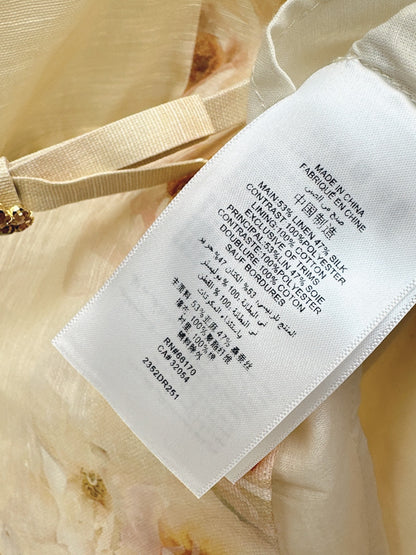 MADE IN CHINA
FABRIQUÉ EN CHINE
صنع في الصين
中国制造
MAIN:53% LINEN 47% SILK
CONTRAST:100%POLYESTER
LINING:100% COTTON
EXCLUSIVE OF TRIMS
PRINCIPAL:53%LIN 47% SOIE
CONTRASTE:100%POLYESTER
DOUBLURE 100% COTON
SAUF BORDURES
53% الكتان 47% حرير
100% بوليستر
البطانة: 100% القطن
باستثناء
主面料 53%亚麻 47%桑蚕丝
100%聚酯纤维
衬里 100%棉
辅料除外
RN#66170
CA# 32054
2352DR251